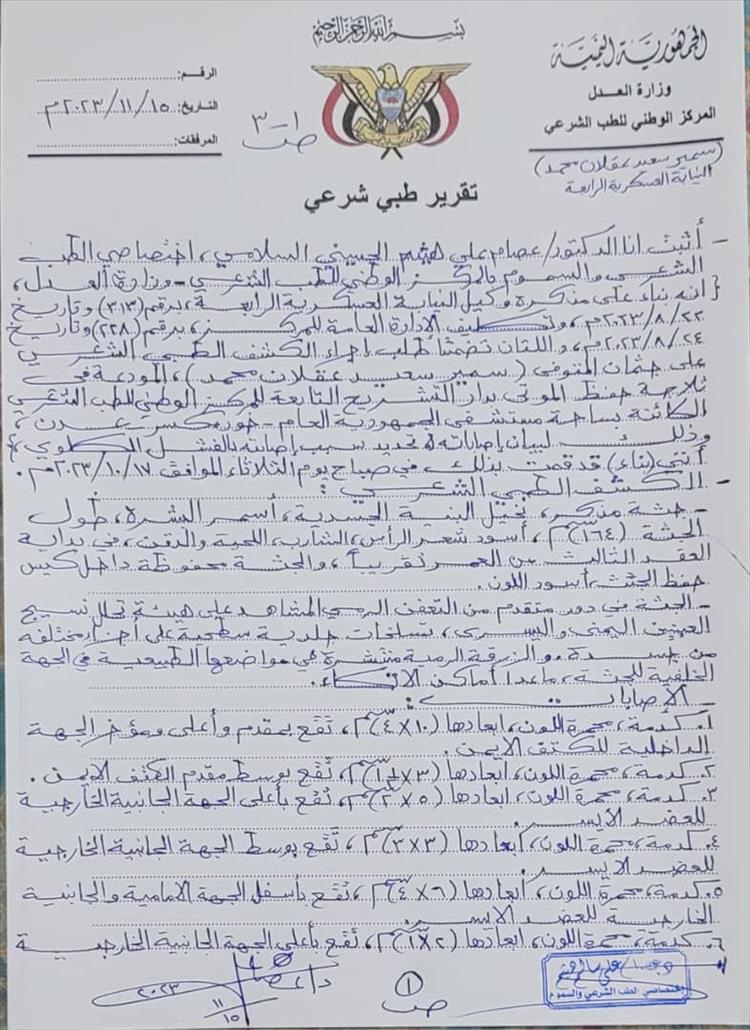 بسم الله الرحمن الرحيم
الجمهورية اليمنية
وزارة العدل
المركز الوطني للطب الشرعي
الرقم:
التاريخ: ٢٠٢٣/١١/١٥م
المرفقات:
ص ١-٣
(سمير سعيد عقلان محمد)
النيابة العسكرية الرابعة
تقرير طبي شرعي
- أثبت أنا الدكتور/ عصام علي هيثم الحسيني السلامي، اختصاصي الطب
الشرعي والسموم بالمركز الوطني للطب الشرعي - وزارة العدل،
{ أنه بناءً على مذكرة وكيل النيابة العسكرية الرابعة، برقم (٣١٣) وتاريخ
٢٠٢٣/٨/٢٢م، وتكليف الإدارة العامة للمركز، برقم (٢٢٨) وتاريخ
٢٠٢٣/٨/٢٤م، واللتان تضمنتا طلب إجراء الكشف الطبي الشرعي
على جثمان المتوفي (سمير سعيد عقلان محمد)، المودعة في
ثلاجة حفظ الموتى بدار التشريح التابعة للمركز الوطني للطب الشرعي
الكائنة بساحة مستشفى الجمهورية العام - خورمكسر - عدن،
وذلك لبيان إصاباته وتحديد سبب إصابته بالفشل الكلوي }
أنني (بناء) قد قمت بذلك في صباح يوم الثلاثاء الموافق ٢٠٢٣/١٠/١٧م.
- الكشف الطبي الشرعي:
- جثة مذكر، نحيل البنية الجسدية، أسمر البشرة، طول
الجثة (١٦٤ سم)، أسود شعر الرأس، الشارب، اللحية والذقن، في بداية
العقد الثالث من العمر تقريباً، والجثة محفوظة داخل كيس
حفظ الجثث، أسود اللون.
- الجثة في دور متقدم من التعفن الرمي المشاهد على هيئة تحلل نسيج
العينين اليمنى واليسرى، تسلخات جلدية سطحية على أجزاء مختلفة
من جسده. والزرقة الرمية منتشرة في مواضعها الطبيعية في الجهة
الخلفية للجثة، ما عدا أماكن الاتكاء.
- الإصابات:
١. كدمة، محمرة اللون، ابعادها (١٠×٤ سم)، تقع بمقدم وأعلى ومؤخر الجهة
الداخلية للكتف الايمن.
٢. كدمة، محمرة اللون، ابعادها (٣×١ سم)، تقع بوسط مقدم الكتف الايمن.
٣. كدمة، محمرة اللون، ابعادها (٥×٢ سم)، تقع بأعلى الجهة الجانبية الخارجية
للعضد الأيسر.
٤. كدمة، محمرة اللون، أبعادها (٣×٣ سم)، تقع بوسط الجهة الجانبية الخارجية
للعضد الايسر.
٥. كدمة، محمرة اللون، ابعادها (٦×٤ سم)، تقع بأسفل الجهة الامامية والجانبية
الخارجية للعضد الايسر.
٦. كدمة، محمرة اللون، ابعادها (٢×١ سم)، تقع بأعلى الجهة الجانبية الخارجية
٢٠٢٣
١١
١٥
ص ١
إختصاصي الطب الشرعي والسموم